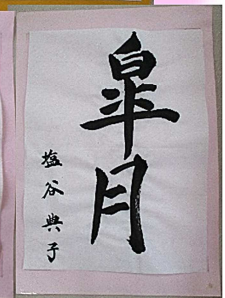 皐月
塩谷典子